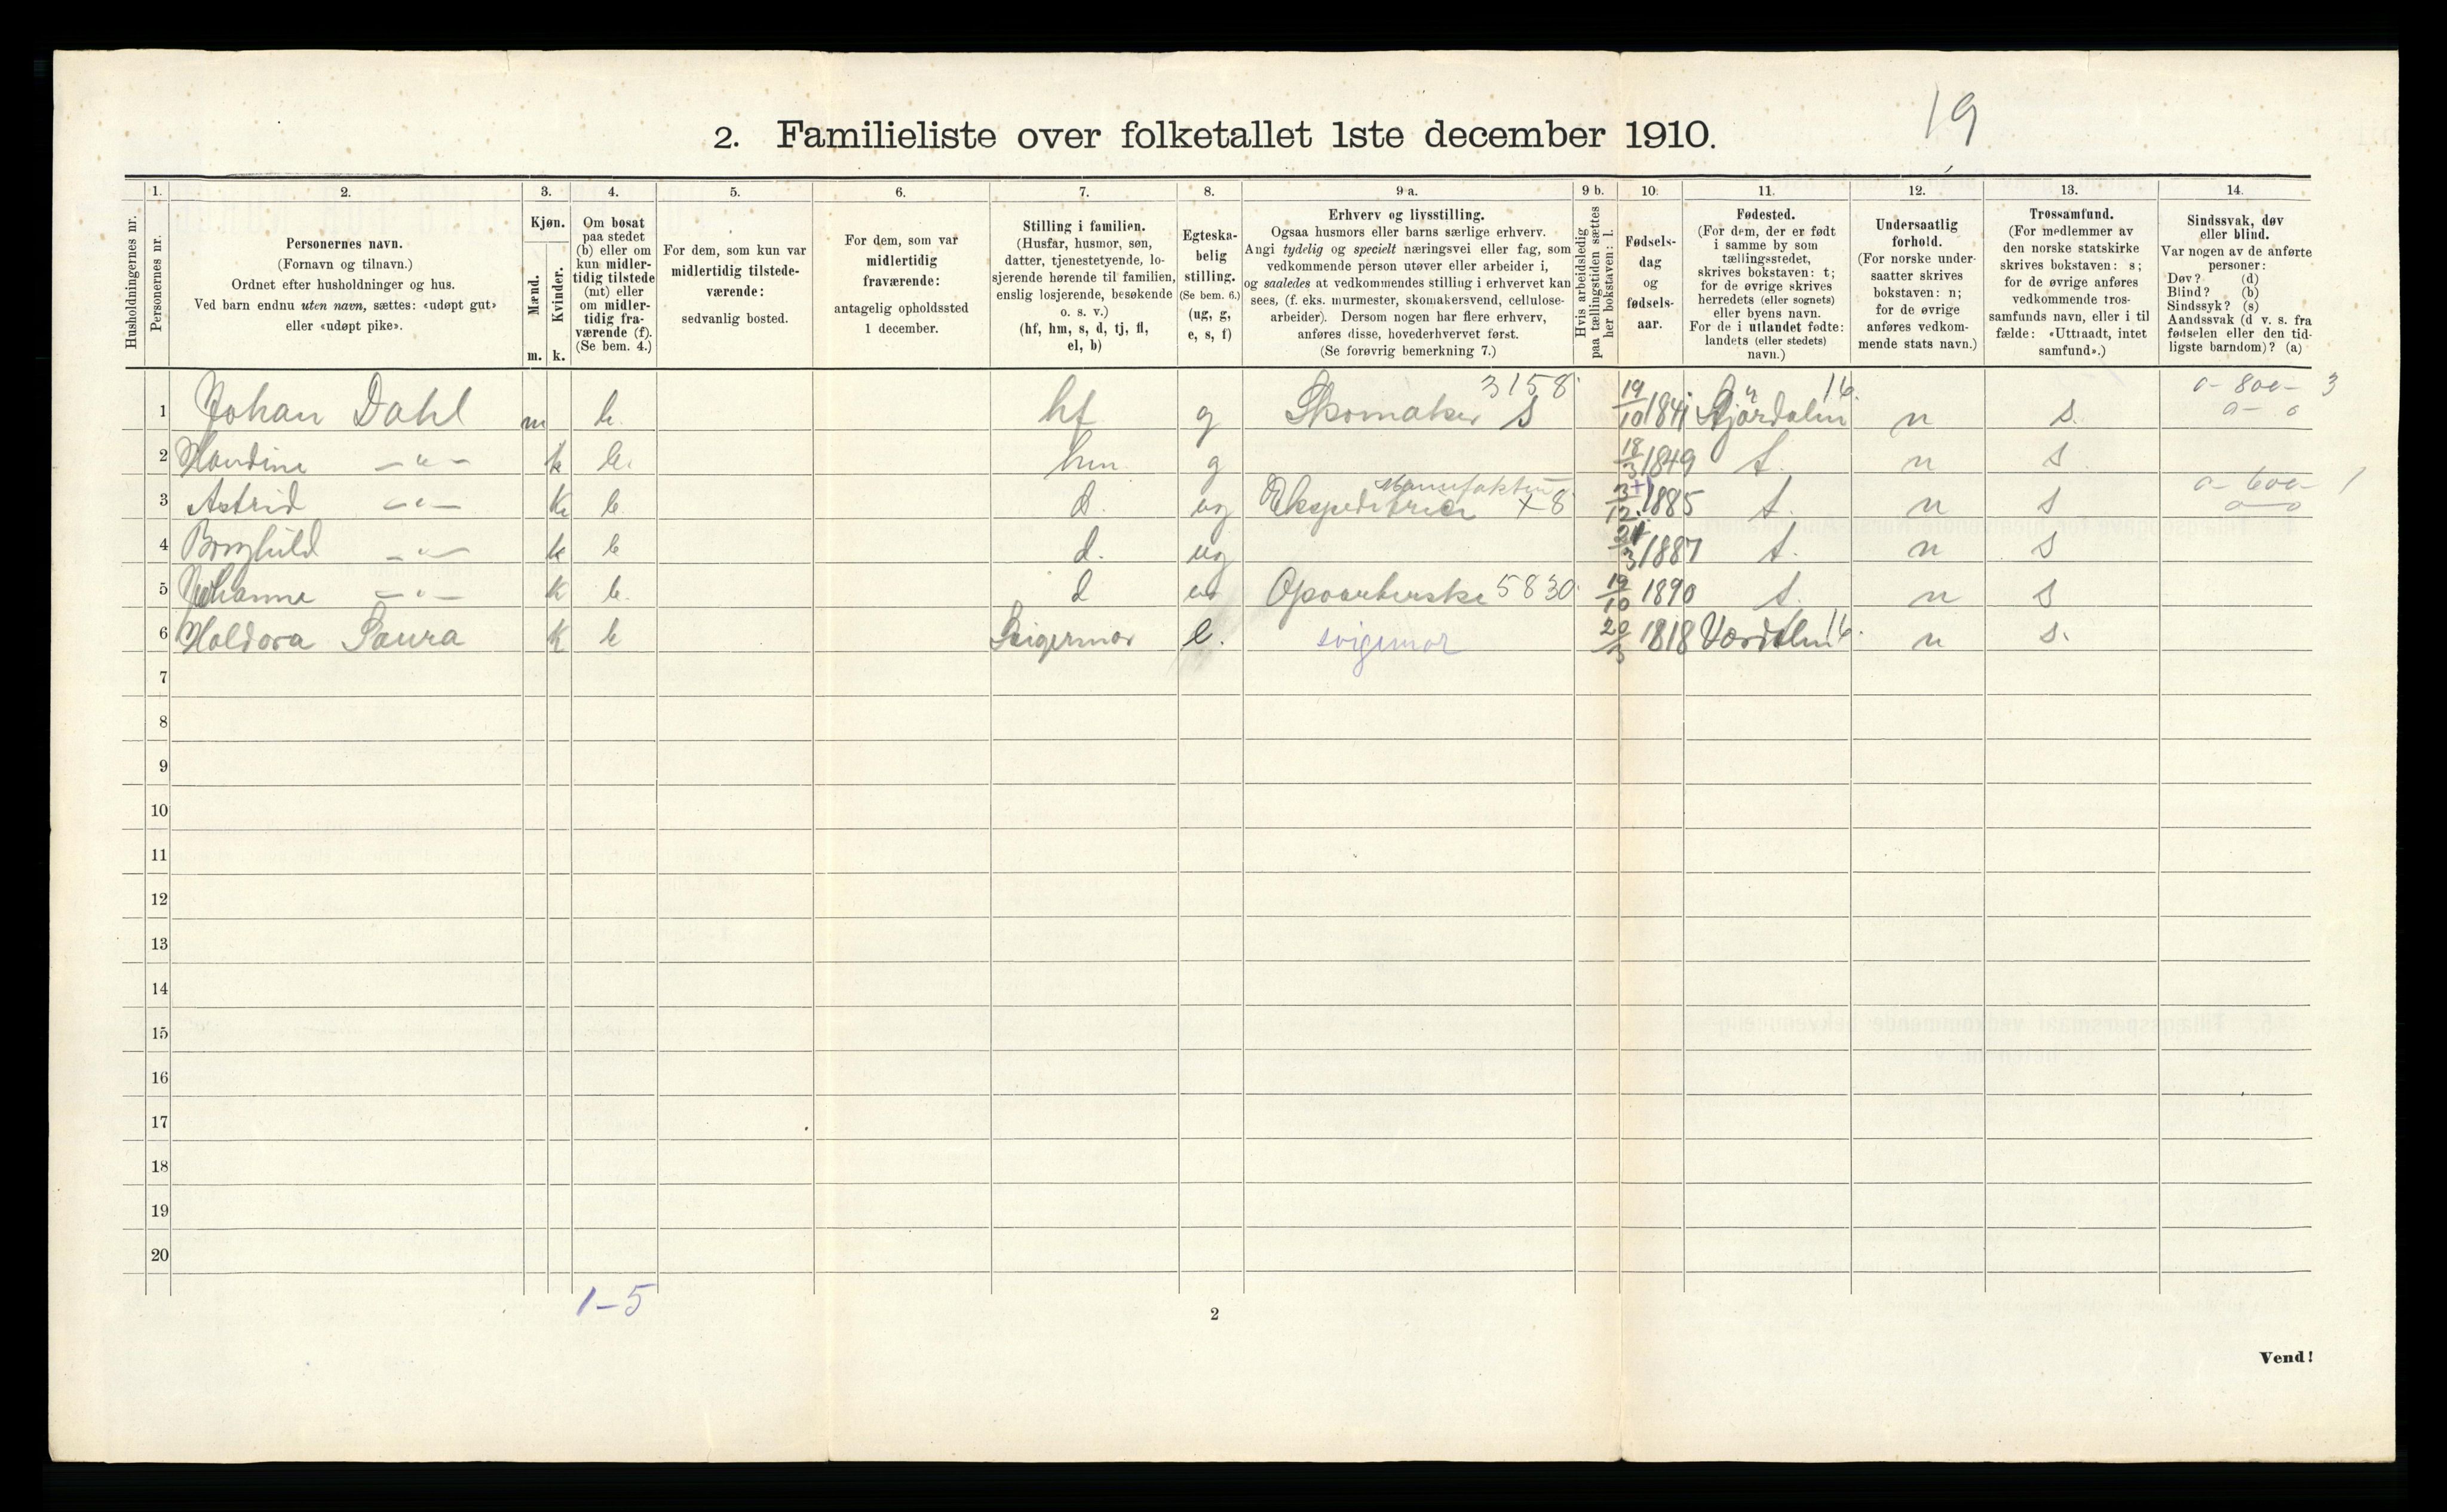 19
2. Familieliste over folketallet 1ste december 1910.
1. 2. 3. 4. 5. 6. 7. 8. 9 a. 9 b. 10. 11. 12. 13. 14.
Husholdningernes nr.
Personernes nr.
Personernes navn.
(Fornavn og tilnavn.)
Ordnet efter husholdninger og hus.
Ved barn endnu uten navn, sættes: «udøpt gut»
eller «udøpt pike».
Kjøn.
Mænd.
Kvinder.
m. k.
Om bosat
paa stedet
(b) eller om
kun midler-
tidig tilstede
(mt) eller
om midler-
tidig fra-
værende (f).
(Se bem. 4.)
For dem, som kun var
midlertidig tilstede-
værende:
sedvanlig bosted.
For dem, som var
midlertidig
fraværende:
antagelig opholdssted
1 december.
Stilling i familien.
(Husfar, husmor, søn,
datter, tjenestetyende, lo-
sjerende hørende til familien,
enslig losjerende, besøkende
o. s. v.)
(hf, hm, s, d, tj, fl,
el, b)
Egteska-
belig
stilling.
(Se bem. 6.)
(ug, g,
e, s, f)
Erhverv og livsstilling.
Ogsaa husmors eller barns særlige erhverv.
Angi tydelig og specielt næringsvei eller fag, som
vedkommende person utøver eller arbeider i,
og saaledes at vedkommendes stilling i erhvervet kan
sees, (f. eks. murmester, skomakersvend, cellulose-
arbeider). Dersom nogen har flere erhverv,
anføres disse, hovederhvervet først.
(Se forøvrig bemerkning 7.)
Hvis arbeidsledig
paa tællingstiden sættes
her bokstaven: l.
Fødsels-
dag
og
fødsels-
aar.
Fødested.
(For dem, der er født
i samme by som
tællingsstedet,
skrives bokstaven: t;
for de øvrige skrives
herredets (eller sognets)
eller byens navn.
For de i utlandet fødte:
landets (eller stedets)
navn.)
Undersaatlig
forhold.
(For norske under-
saatter skrives
bokstaven: n;
for de øvrige
anføres vedkom-
mende stats navn.)
Trossamfund.
(For medlemmer av
den norske statskirke
skrives bokstaven: s;
for de øvrige anføres
vedkommende tros-
samfunds navn, eller i til
fælde: «Uttraadt, intet
samfund».)
Sindssvak, døv
eller blind.
Var nogen av de anførte
personer:
Døv? (d)
Blind? (b)
Sindssyk? (s)
Aandssvak (d v. s. fra
fødselen eller den tid-
ligste barndom)? (a)
3158 16. 0- 800- 3
1 Johan Dahl m b. hf g Skomaker s 19/10 1841 Stjørdalen n s. 0- 0
2 -"- k b. hm g 18/3 1849 t. n s
Manufaktur 0- 600- 1
3 Astrid -"- k b d. ug Ekspeditrice x8 3/12 1885 t. n s 0-0
4 Borghild -"- k b d. ug /3 1887 t. n s
5 Johanne -"- k b. d ug 5830 19/10 1890 t. n s
6 Haldora Saura k b Svigermor e. svigermor 20/ 1818 Værdalen 16. n s.
7
8
9
10
11
12
13
14
15
16
17
18
19
20
1-5
2
Vend!